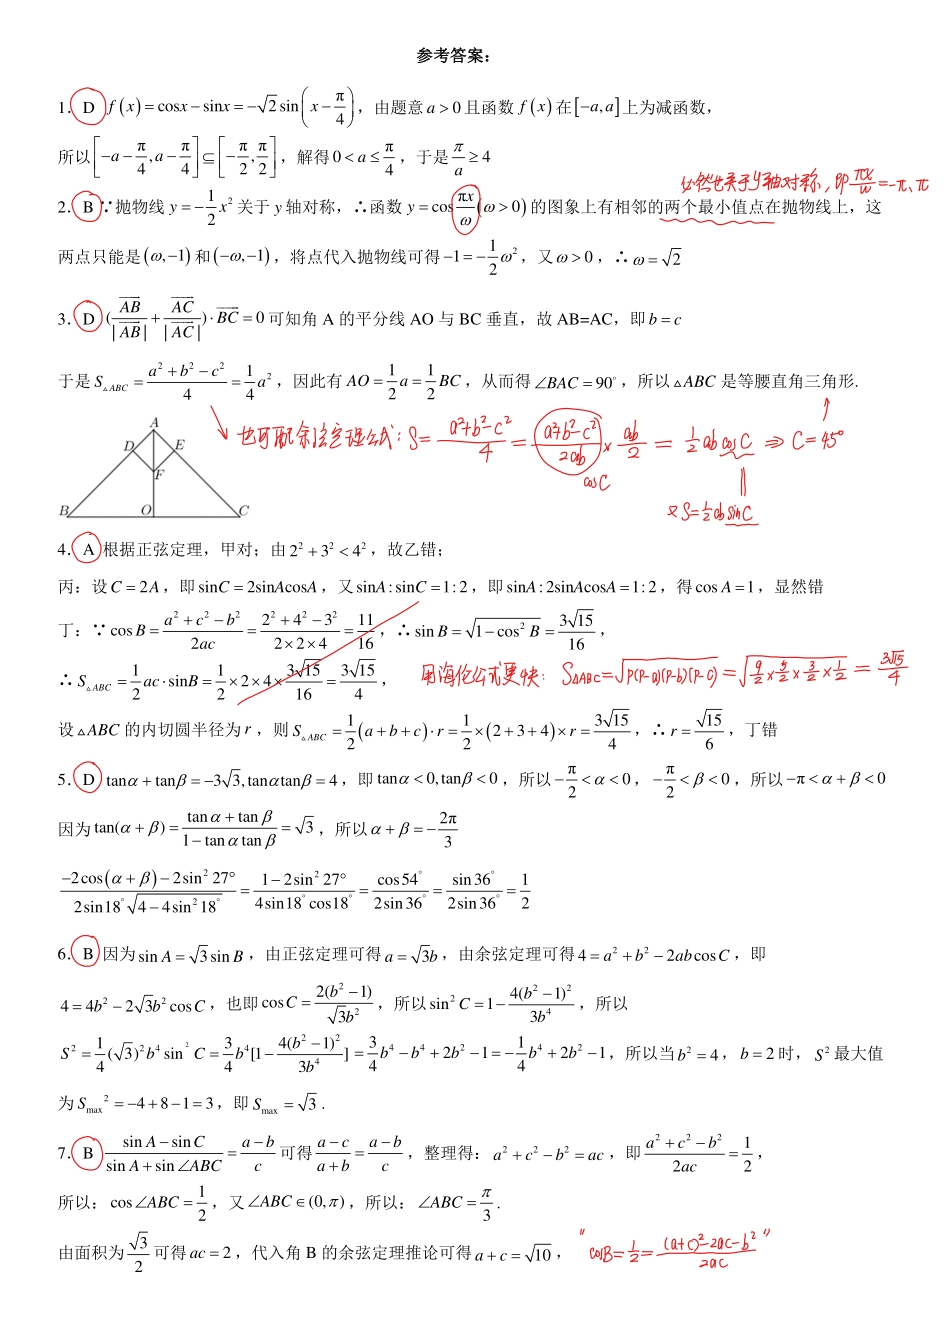 参考答案：
1．D f(x)=cosx−sinx=−√2sin(x−π/4)，由题意a>0且函数f(x)在[−a,a]上为减函数，
所以[−a−π/4,a−π/4]⊆[−π/2,π/2]，解得0<a≤π/4，于是π/a≥4
必然也关于y轴对称，即πx/ω=−π、π
2．B∵抛物线y=−1/2x²关于y轴对称，∴函数y=cosπx/ω(ω>0)的图象上有相邻的两个最小值点在抛物线上，这
两点只能是(ω,−1)和(−ω,−1)，将点代入抛物线可得−1=−1/2ω²，又ω>0，∴ω=√2
3．D (AB/|AB|+AC/|AC|)·BC=0可知角A的平分线AO与BC垂直，故AB=AC，即b=c
于是S△ABC=(a²+b²−c²)/4=1/4a²，因此有AO=1/2a=1/2BC，从而得∠BAC=90°，所以△ABC是等腰直角三角形.
也可配余弦定理公式：S=(a²+b²−c²)/4=(a²+b²−c²)/2ab×ab/2=1/2abcosC⇒C=45°
cosC
又S=1/2absinC
A
D E
F
B O C
4．A 根据正弦定理，甲对；由2²+3²<4²，故乙错；
丙：设C=2A，即sinC=2sinAcosA，又sinA:sinC=1:2，即sinA:2sinAcosA=1:2，得cosA=1，显然错
丁：∵cosB=(a²+c²−b²)/2ac=(2²+4²−3²)/(2×2×4)=11/16，∴sinB=√(1−cos²B)=3√15/16，
∴S△ABC=1/2acsinB=1/2×2×4×3√15/16=3√15/4，
用海伦公式更快：S△ABC=√(p(p-a)(p-b)(p-c))=√(9/2×5/2×3/2×1/2)=3√15/4
设△ABC的内切圆半径为r，则S△ABC=1/2(a+b+c)·r=1/2×(2+3+4)×r=3√15/4，∴r=√15/6，丁错
5．D tanα+tanβ=−3√3,tanαtanβ=4，即tanα<0,tanβ<0，所以−π/2<α<0，−π/2<β<0，所以−π<α+β<0
因为tan(α+β)=(tanα+tanβ)/(1−tanαtanβ)=√3，所以α+β=−2π/3
(−2cos(α+β)−2sin²27°)/(2sin18°√(4−4sin²18°))=(1−2sin²27°)/(4sin18°cos18°)=cos54°/2sin36°=sin36°/2sin36°=1/2
6．B 因为sinA=√3sinB，由正弦定理可得a=√3b，由余弦定理可得4=a²+b²−2abcosC，即
4=4b²−2√3b²cosC，也即cosC=2(b²−1)/√3b²，所以sin²C=1−4(b²−1)²/3b⁴，所以
S²=1/4(√3)²b⁴sin²C=3/4b⁴[1−4(b²−1)²/3b⁴]=3/4b⁴−b⁴+2b²−1=−1/4b⁴+2b²−1，所以当b²=4，b=2时，S²最大值
为Smax²=−4+8−1=3，即Smax=√3.
7．B (sinA−sinC)/(sinA+sin∠ABC)=(a−b)/c可得(a−c)/(a+b)=(a−b)/c，整理得：a²+c²−b²=ac，即(a²+c²−b²)/2ac=1/2，
所以：cos∠ABC=1/2，又∠ABC∈(0,π)，所以：∠ABC=π/3.
由面积为√3/2可得ac=2，代入角B的余弦定理推论可得a+c=√10，
"cosB=1/2=((a+c)²−2ac−b²)/2ac"